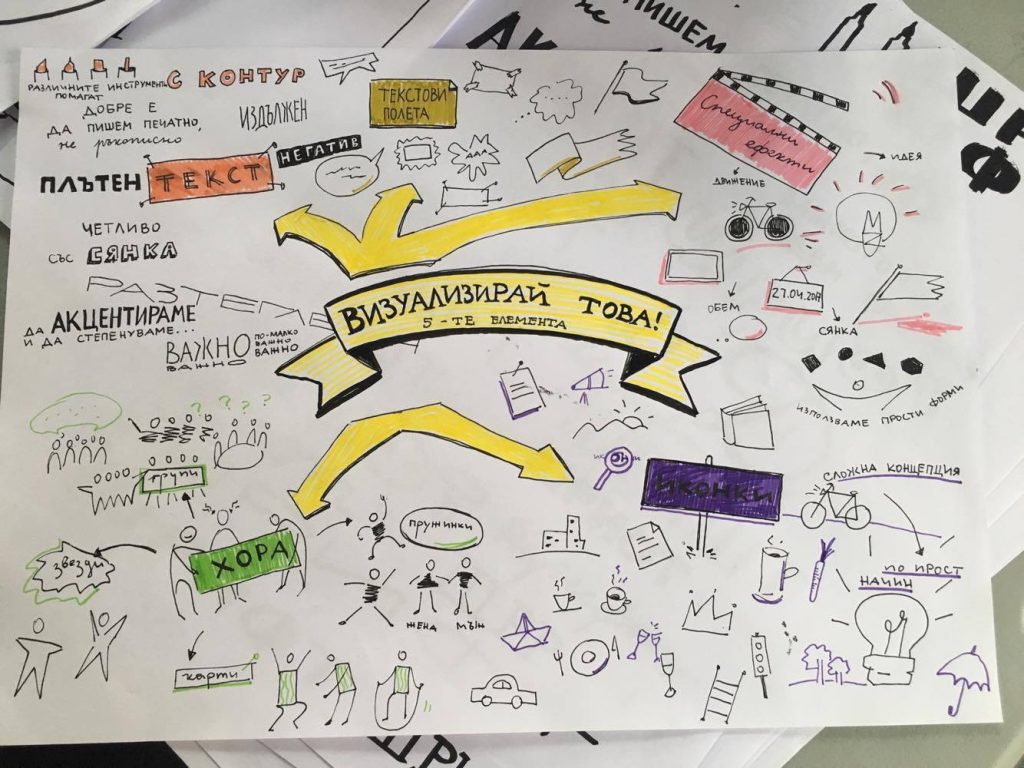 РАЗЛИЧНИТЕ ИНСТРУМЕНТИ
ПОМАГАТ
С КОНТУР
ДОБРЕ Е
ДА ПИШЕМ ПЕЧАТНО,
не ръкописно
ИЗДЪЛЖЕН
ПЛЪТЕН
ТЕКСТ
НЕГАТИВ
ЧЕТЛИВО
СЪС СЯНКА
ДА АКЦЕНТИРАМЕ
И ДА СТЕПЕНУВАМЕ...
ВАЖНО
ВАЖНО
ПО-МАЛКО
ВАЖНО
ВАЖНО
ТЕКСТОВИ
ПОЛЕТА
Специални
ефекти
ИДЕЯ
ДВИЖЕНИЕ
ОБЕМ
27.04.2017
СЯНКА
ИЗПОЛЗВАМЕ ПРОСТИ ФОРМИ
ВИЗУАЛИЗИРАЙ ТОВА!
5-ТЕ ЕЛЕМЕНТА
групи
ХОРА
звезди
карти
пружинки
ЖЕНА
МЪЖ
ИКОНКИ
СЛОЖНА КОНЦЕПЦИЯ
ПО ПРОСТ
НАЧИН
ПИШЕМ
не